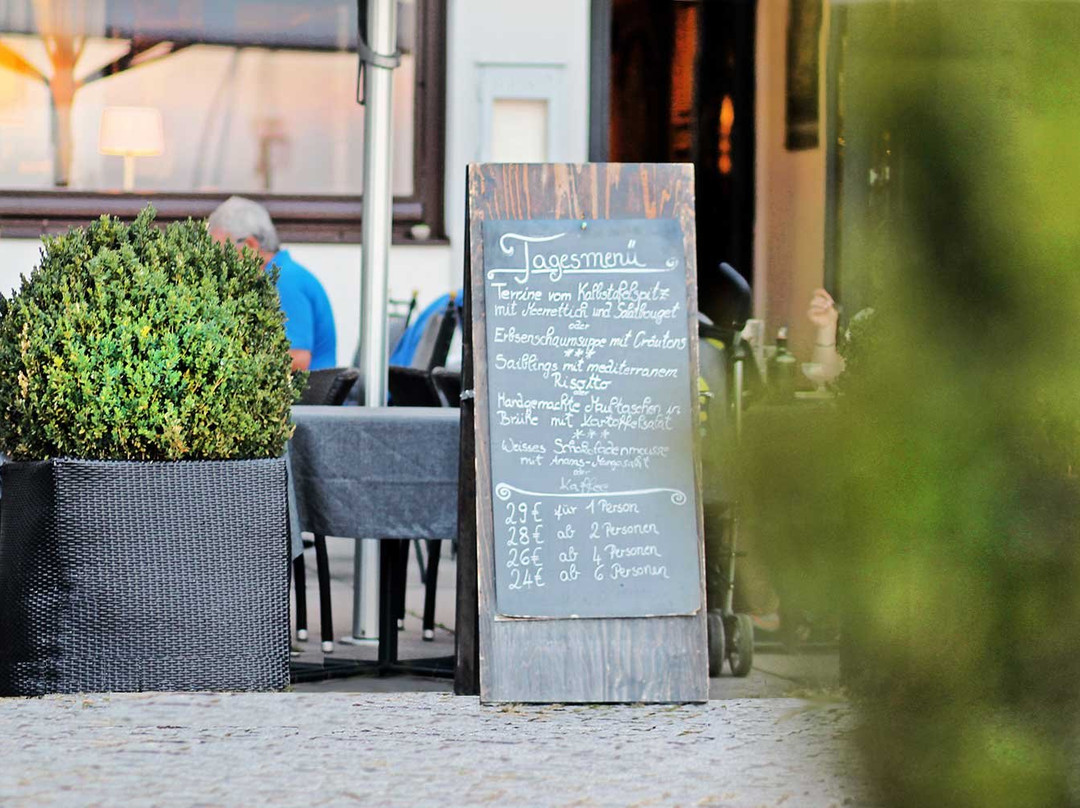 Tagesmenü
Terrine vom Kalbstafelspitz
mit Meerrettich und Salatbouget
oder
Erbsenschaumsuppe mit Croûtons
***
Saiblings mit mediterranem
Risotto
oder
Handgemachte Maultaschen in
Brühe mit Kartoffelsalat
***
Weisses Schokoladenmousse
mit Ananas-
oder
Kaffee
29€ für 1 Person
28€ ab 2 Personen
26€ ab 4 Personen
24€ ab 6 Personen